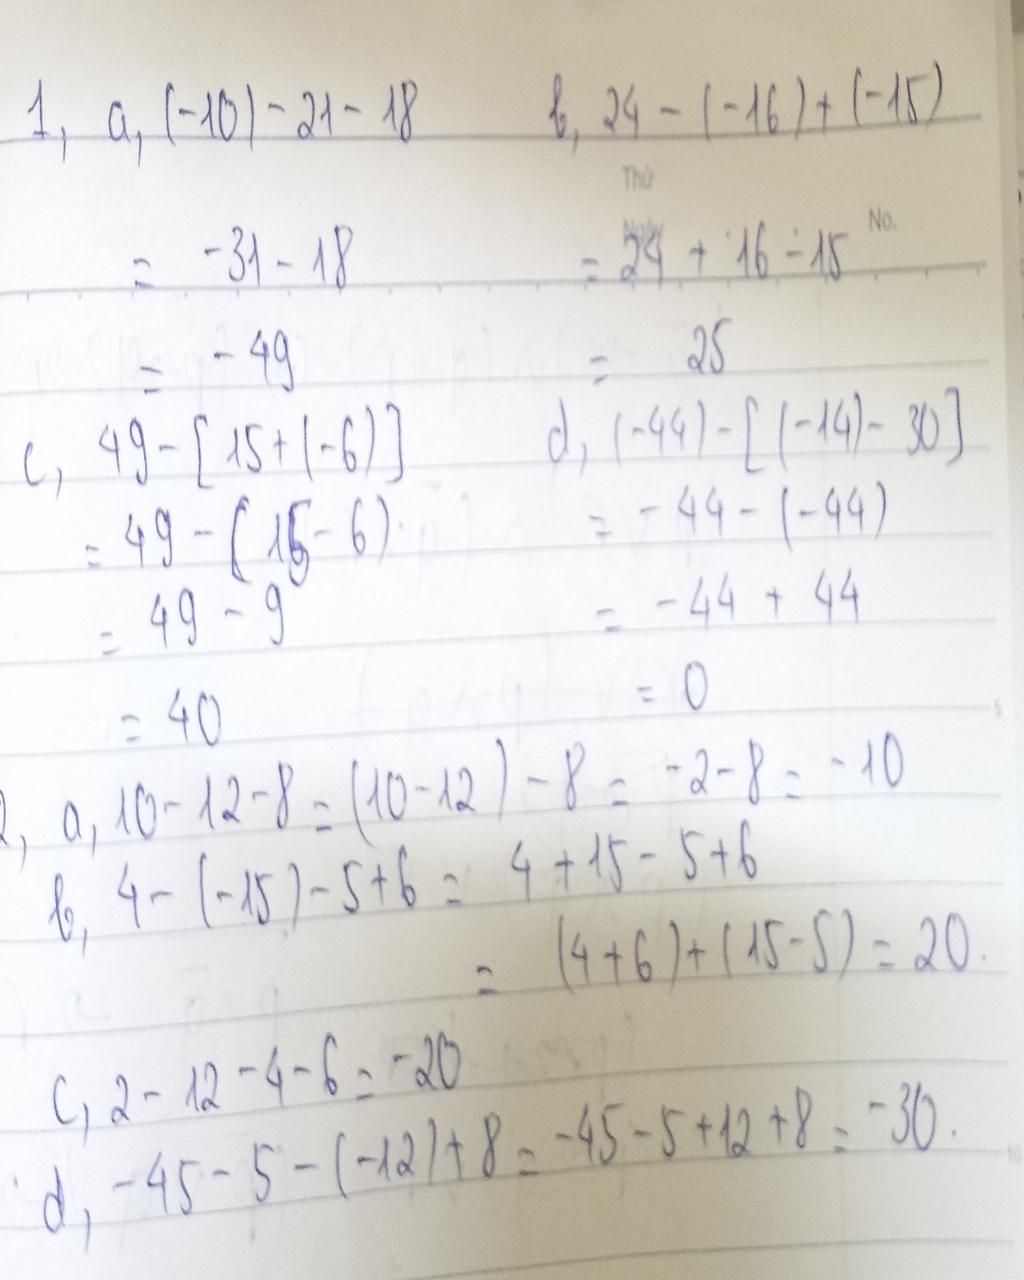 1, a, (-10) - 21 - 18
= -31 - 18
= -49
b, 24 - (-16) + (-15)
Thứ
Ngày
No.
= 24 + 16 - 15
= 25
c, 49 - [15 + (-6)]
= 49 - (15 - 6)
= 49 - 9
= 40
d, (-44) - [(-14) - 30]
= -44 - (-44)
= -44 + 44
= 0
2, a, 10 - 12 - 8 = (10 - 12) - 8 = -2 - 8 = -10
b, 4 - (-15) - 5 + 6 = 4 + 15 - 5 + 6
= (4 + 6) + (15 - 5) = 20.
c, 2 - 12 - 4 - 6 = -20
d, -45 - 5 - (-12) + 8 = -45 - 5 + 12 + 8 = -30.
5
10